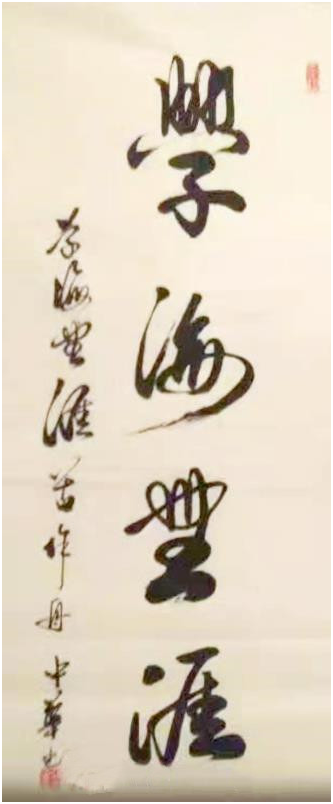 學海無涯
学海無涯苦作舟 中華